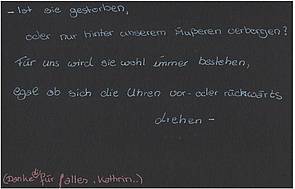 - Ist sie gestorben,
oder nur hinter unserem Äußeren verborgen?
Für uns wird sie wohl immer bestehen,
egal ob sich die Uhren vor- oder rückwärts
drehen -
(Danke für alles, Kathrin..)